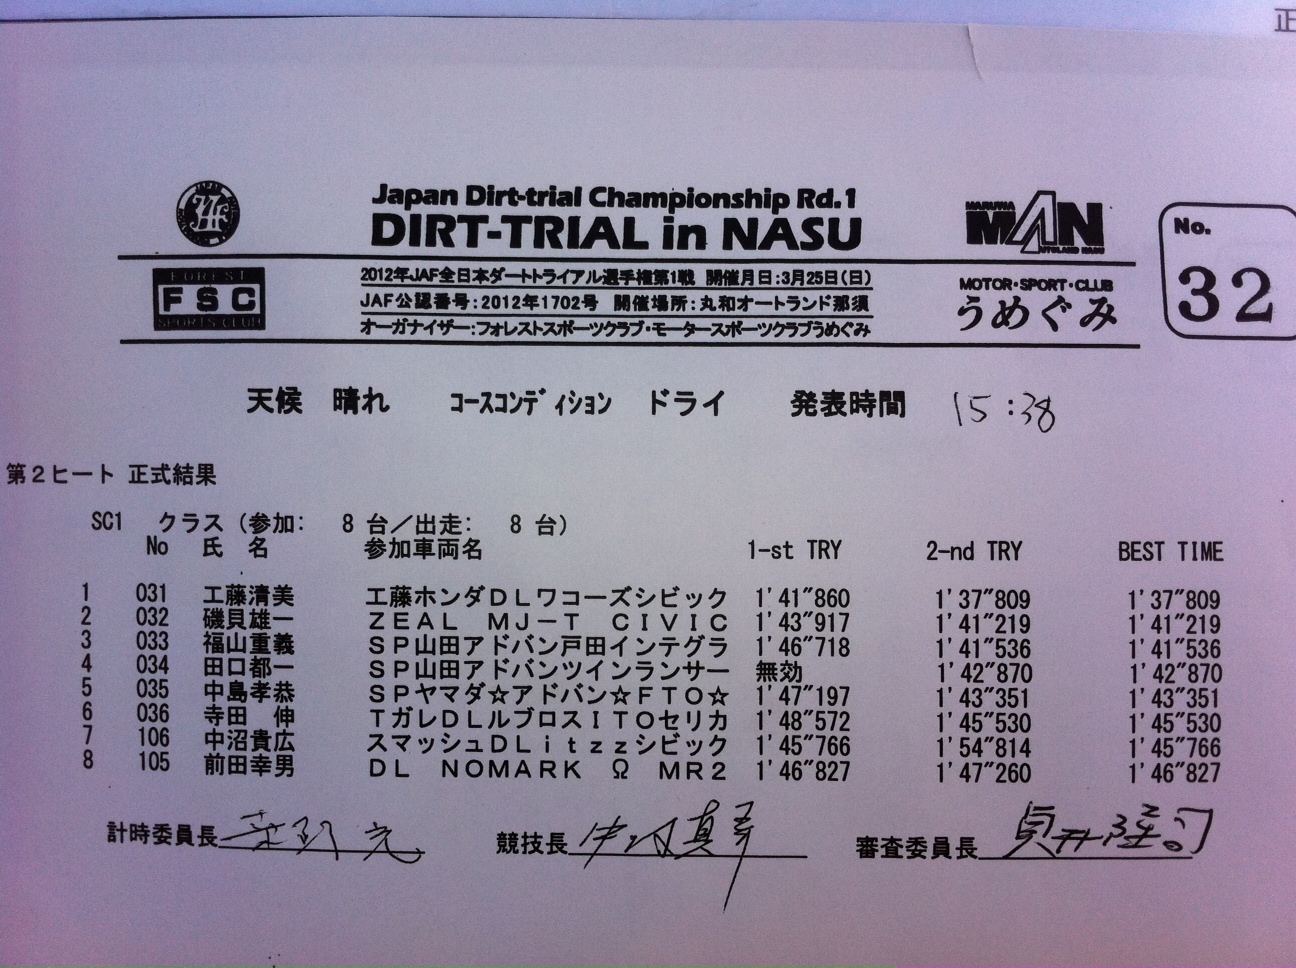 正
Japan Dirt-trial Championship Rd.1
DIRT-TRIAL in NASU
MARUWA
MAN
AUTOLAND NASU
No.
32
FOREST
FSC
SPORTS CLUB
2012年JAF全日本ダートトライアル選手権第1戦 開催月日:3月25日(日)
JAF公認番号:2012年1702号 開催場所:丸和オートランド那須
オーガナイザー:フォレストスポーツクラブ・モータースポーツクラブうめぐみ
MOTOR・SPORT・CLUB
うめぐみ
天候 晴れ コースコンディション ドライ 発表時間 15:38
第2ヒート 正式結果
SC1 クラス (参加: 8 台/出走: 8 台)
No 氏 名 参加車両名 1-st TRY 2-nd TRY BEST TIME
1 031 工藤清美 工藤ホンダDLワコーズシビック 1'41"860 1'37"809 1'37"809
2 032 磯貝雄一 ZEAL MJ-T CIVIC 1'43"917 1'41"219 1'41"219
3 033 福山重義 SP山田アドバン戸田インテグラ 1'46"718 1'41"536 1'41"536
4 034 田口都一 SP山田アドバンツインランサー 無効 1'42"870 1'42"870
5 035 中島孝恭 SPヤマダ☆アドバン☆FTO☆ 1'47"197 1'43"351 1'43"351
6 036 寺田 伸 TガレDLルブロスITOセリカ 1'48"572 1'45"530 1'45"530
7 106 中沼貴広 スマッシュDLitzzシビック 1'45"766 1'54"814 1'45"766
8 105 前田幸男 DL NOMARK Ω MR2 1'46"827 1'47"260 1'46"827
計時委員長 競技長 審査委員長